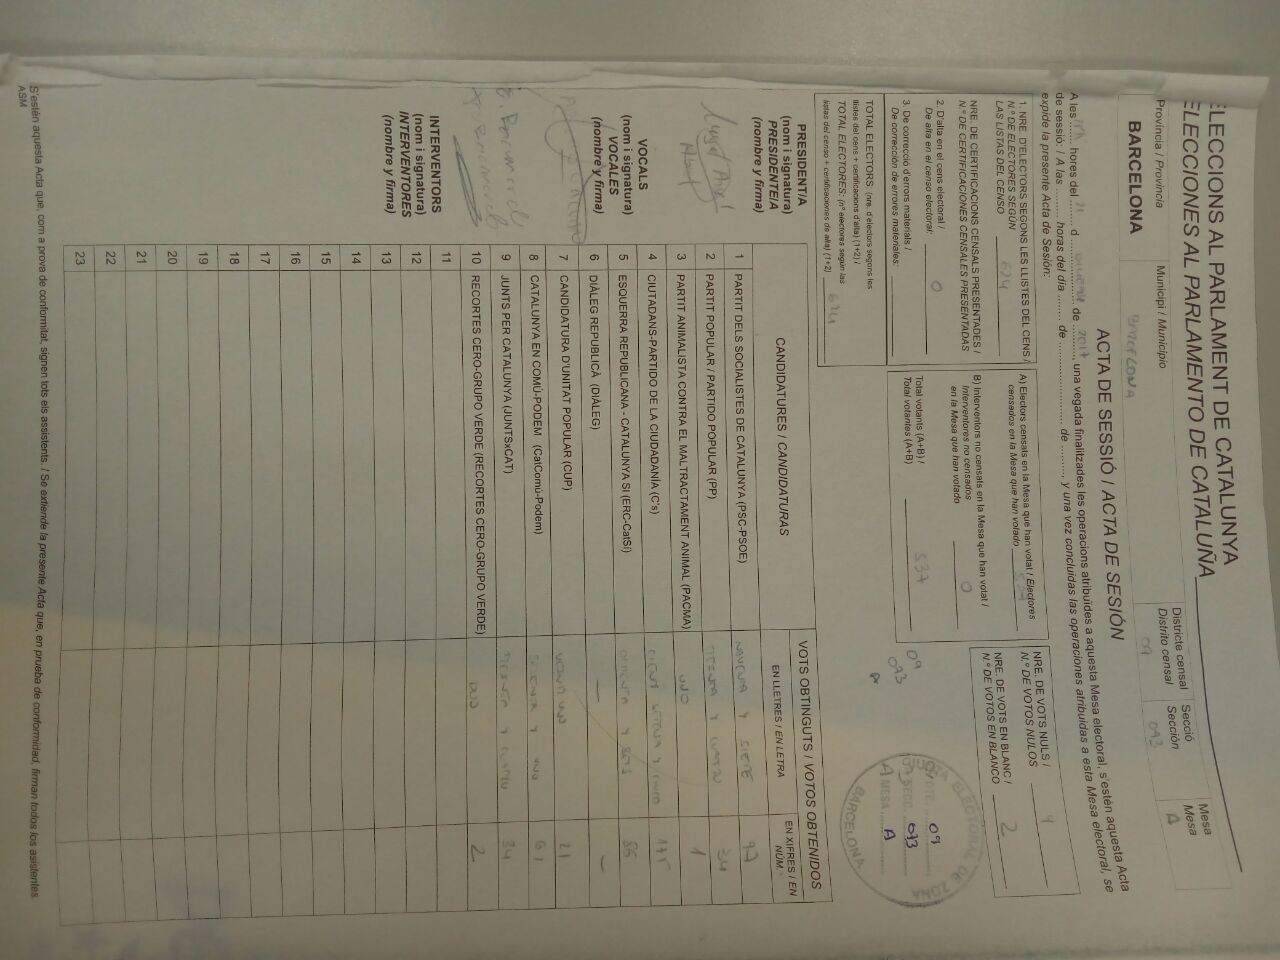 ELECCIONS AL PARLAMENT DE CATALUNYA
ELECCIONES AL PARLAMENTO DE CATALUÑA
Província / Provincia
BARCELONA
Municipi / Municipio
BARCELONA
Districte censal
Distrito censal
09
Secció
Sección
093
Mesa
Mesa
A
ACTA DE SESSIÓ / ACTA DE SESIÓN
A les ........ hores del 21 d ........ de 2017, una vegada finalitzades les operacions atribuïdes a aquesta Mesa electoral, s'estén aquesta Acta
de sessió: / A las ......... horas del día ......... de ........................ de ........., y una vez concluidas las operaciones atribuidas a esta Mesa electoral, se
expide la presente Acta de Sesión:
1. NRE. D'ELECTORS SEGONS LES LLISTES DEL CENS /
N.º DE ELECTORES SEGÚN
LAS LISTAS DEL CENSO
NRE. DE CERTIFICACIONS CENSALS PRESENTADES /
N.º DE CERTIFICACIONES CENSALES PRESENTADAS
2. D'alta en el cens electoral /
De alta en el censo electoral: 0
3. De correcció d'errors materials /
De corrección de errores materiales:
TOTAL ELECTORS: (nre. d'electors segons les
llistes del cens + certificacions d'alta) (1+2) /
TOTAL ELECTORES: (nº electores según las
listas del censo + certificaciones de alta) (1+2)
A) Electors censats en la Mesa que han votat / Electores
censados en la Mesa que han votado 537
B) Interventors no censats en la Mesa que han votat /
Interventores no censados
en la Mesa que han votado 0
Total votants (A+B) /
Total votantes (A+B) 537
NRE. DE VOTS NULS /
N.º DE VOTOS NULOS
NRE. DE VOTS EN BLANC /
N.º DE VOTOS EN BLANCO 2
09
093
JUNTA ELECTORAL DE ZONA
DTE. 09
SECC. 093
MESA A
BARCELONA
PRESIDENT/A
(nom i signatura)
PRESIDENTE/A
(nombre y firma)
VOCALS
(nom i signatura)
VOCALES
(nombre y firma)
INTERVENTORS
(nom i signatura)
INTERVENTORES
(nombre y firma)
CANDIDATURES / CANDIDATURAS
VOTS OBTINGUTS / VOTOS OBTENIDOS
EN LLETRES / EN LETRA
EN XIFRES / EN NÚM.
1 PARTIT DELS SOCIALISTES DE CATALUNYA (PSC-PSOE) NOVENTA Y SIETE 97
2 PARTIT POPULAR / PARTIDO POPULAR (PP) TREINTA Y CUATRO 34
3 PARTIT ANIMALISTA CONTRA EL MALTRACTAMENT ANIMAL (PACMA) UNO 1
4 CIUTADANS-PARTIDO DE LA CIUDADANÍA (C's)
5 ESQUERRA REPUBLICANA - CATALUNYA SÍ (ERC-CatSí) OCHENTA Y SEIS 86
6 DIÀLEG REPUBLICÀ (DIÀLEG) — —
7 CANDIDATURA D'UNITAT POPULAR (CUP) VEINTIUNO 21
8 CATALUNYA EN COMÚ-PODEM (CatComú-Podem) SESENTA Y UNO 61
9 JUNTS PER CATALUNYA (JUNTSxCAT) TREINTA Y CUATRO 34
10 RECORTES CERO-GRUPO VERDE (RECORTES CERO-GRUPO VERDE) DOS 2
11
12
13
14
15
16
17
18
19
20
21
22
23
S'estén aquesta Acta que, com a prova de conformitat, signen tots els assistents. / Se extiende la presente Acta que, en prueba de conformidad, firman todos los asistentes.
ASM